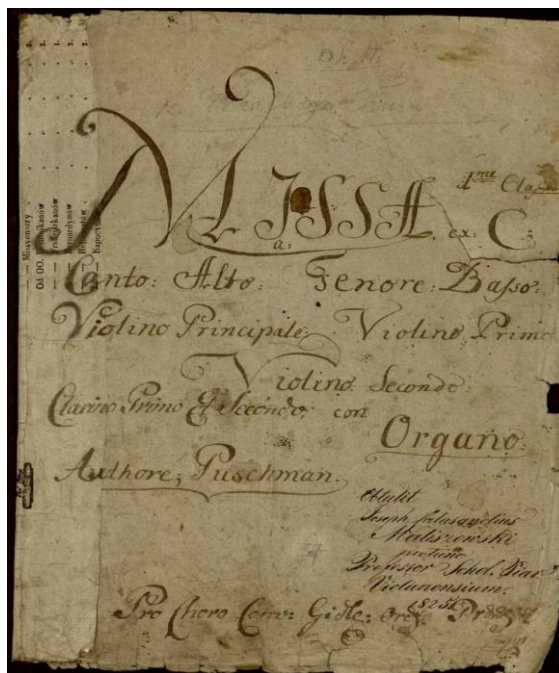 MISSA. ex. C.
1me Class
a.
Canto: Alto: Tenore: Basso:
Violino Principale; Violino Primo
Violino Secondo:
Clarino Primo Et Secondo; con
Organo:
Authore; Puschman.
Obtulit
Joseph
Maliszewski
Professor Schol. Piar
Vielunensium.
1825
Pro Choro Conv: Gidle: Ord: Pr
— Missyonarzy
Od OO.